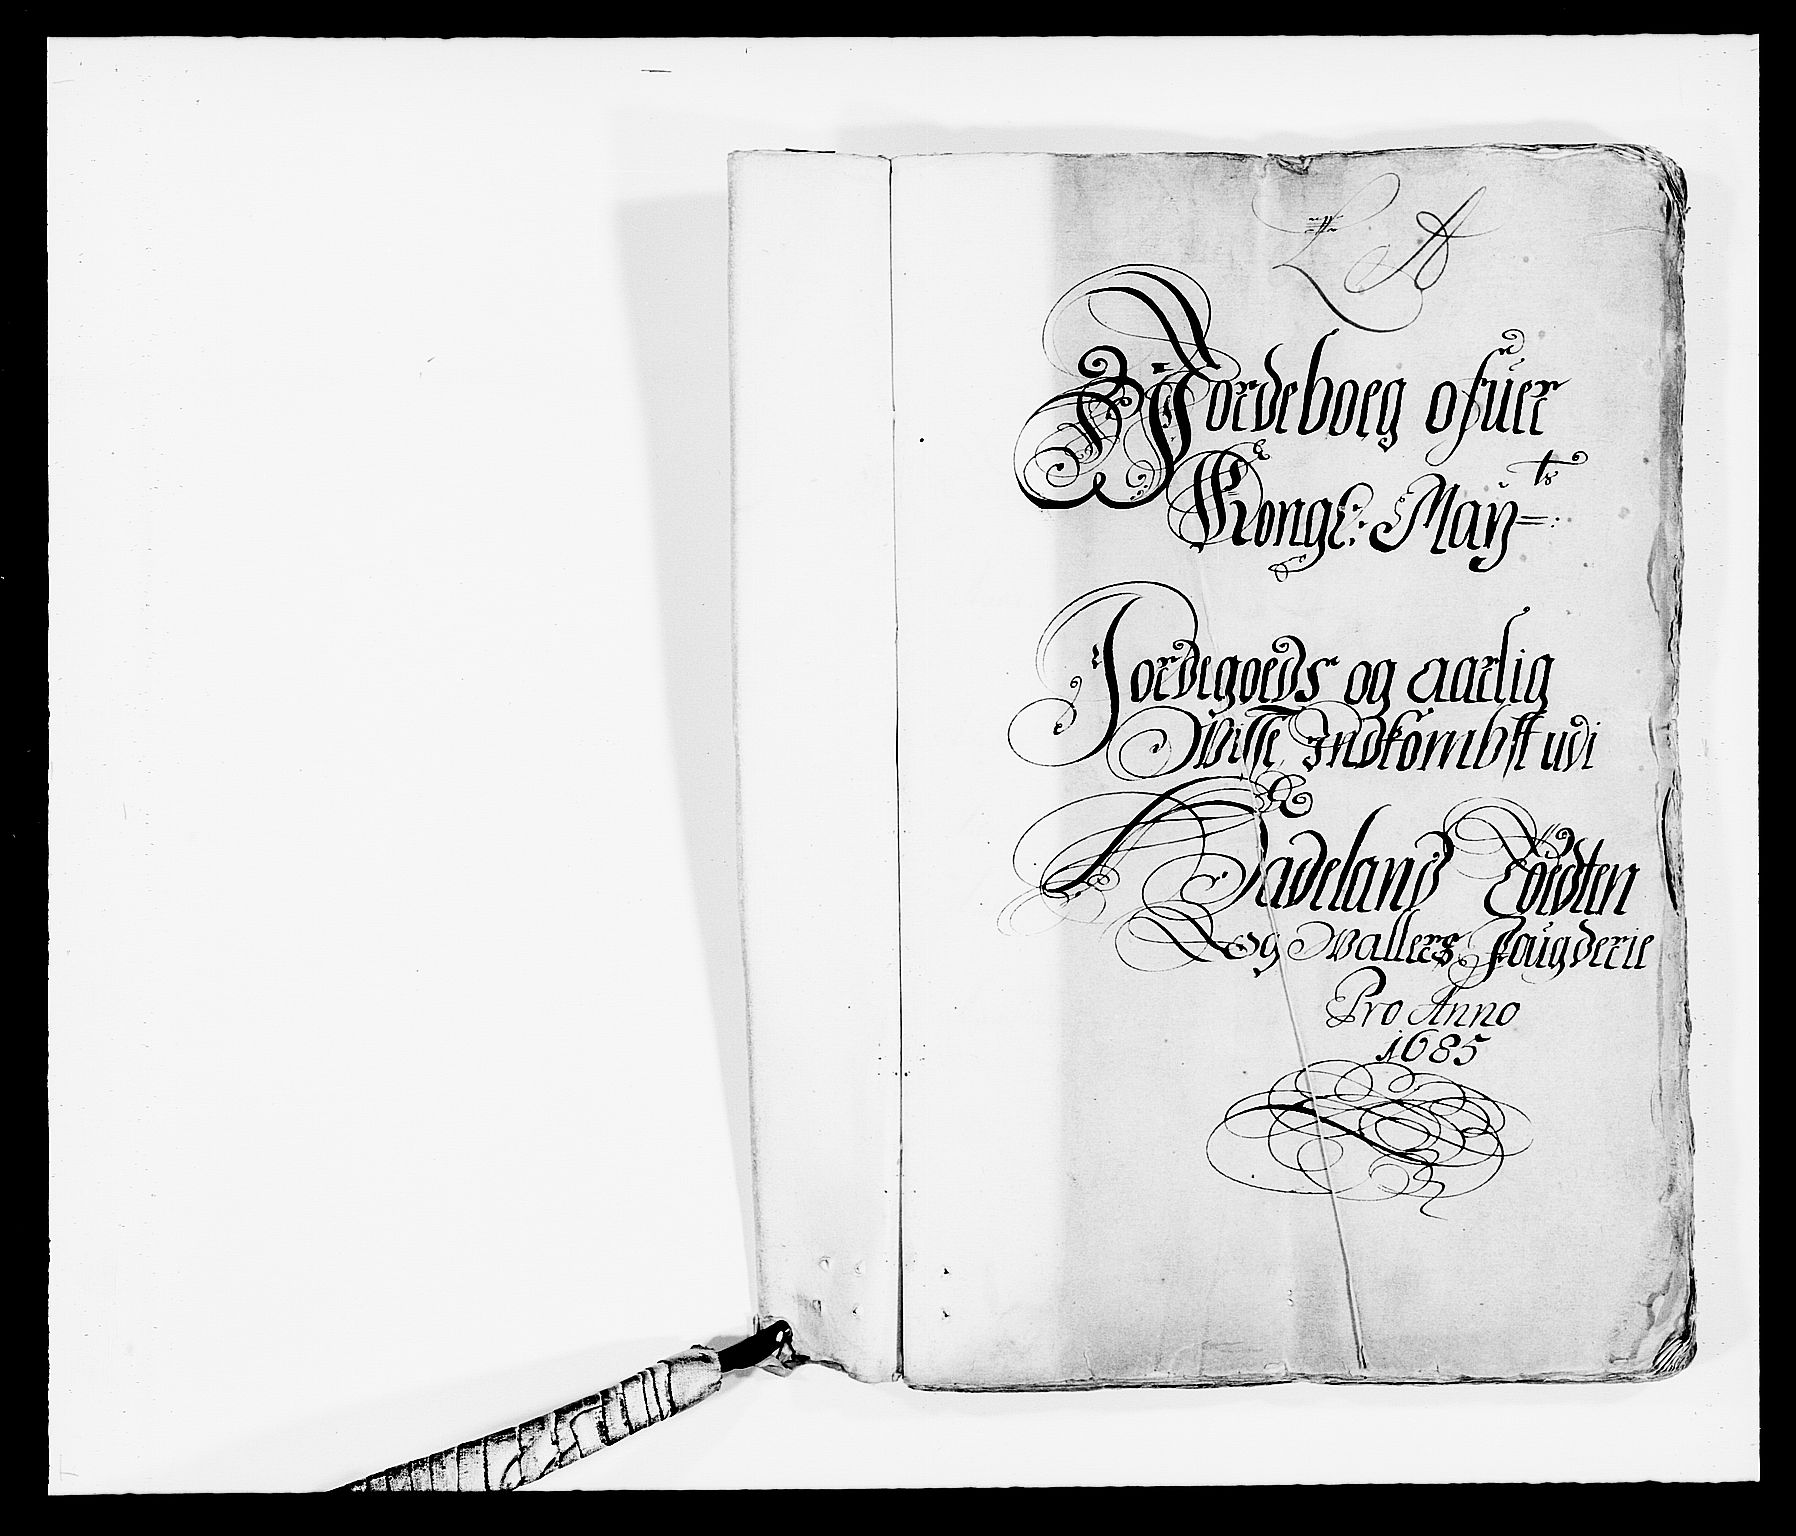 L A
Jordeboeg ofuer
Kongl: May=ts:
Jordegoeds og aarlig
Visse Indkombst udi
Hadeland Toedten
og Wallers Fougderie
Pro Anno
1685